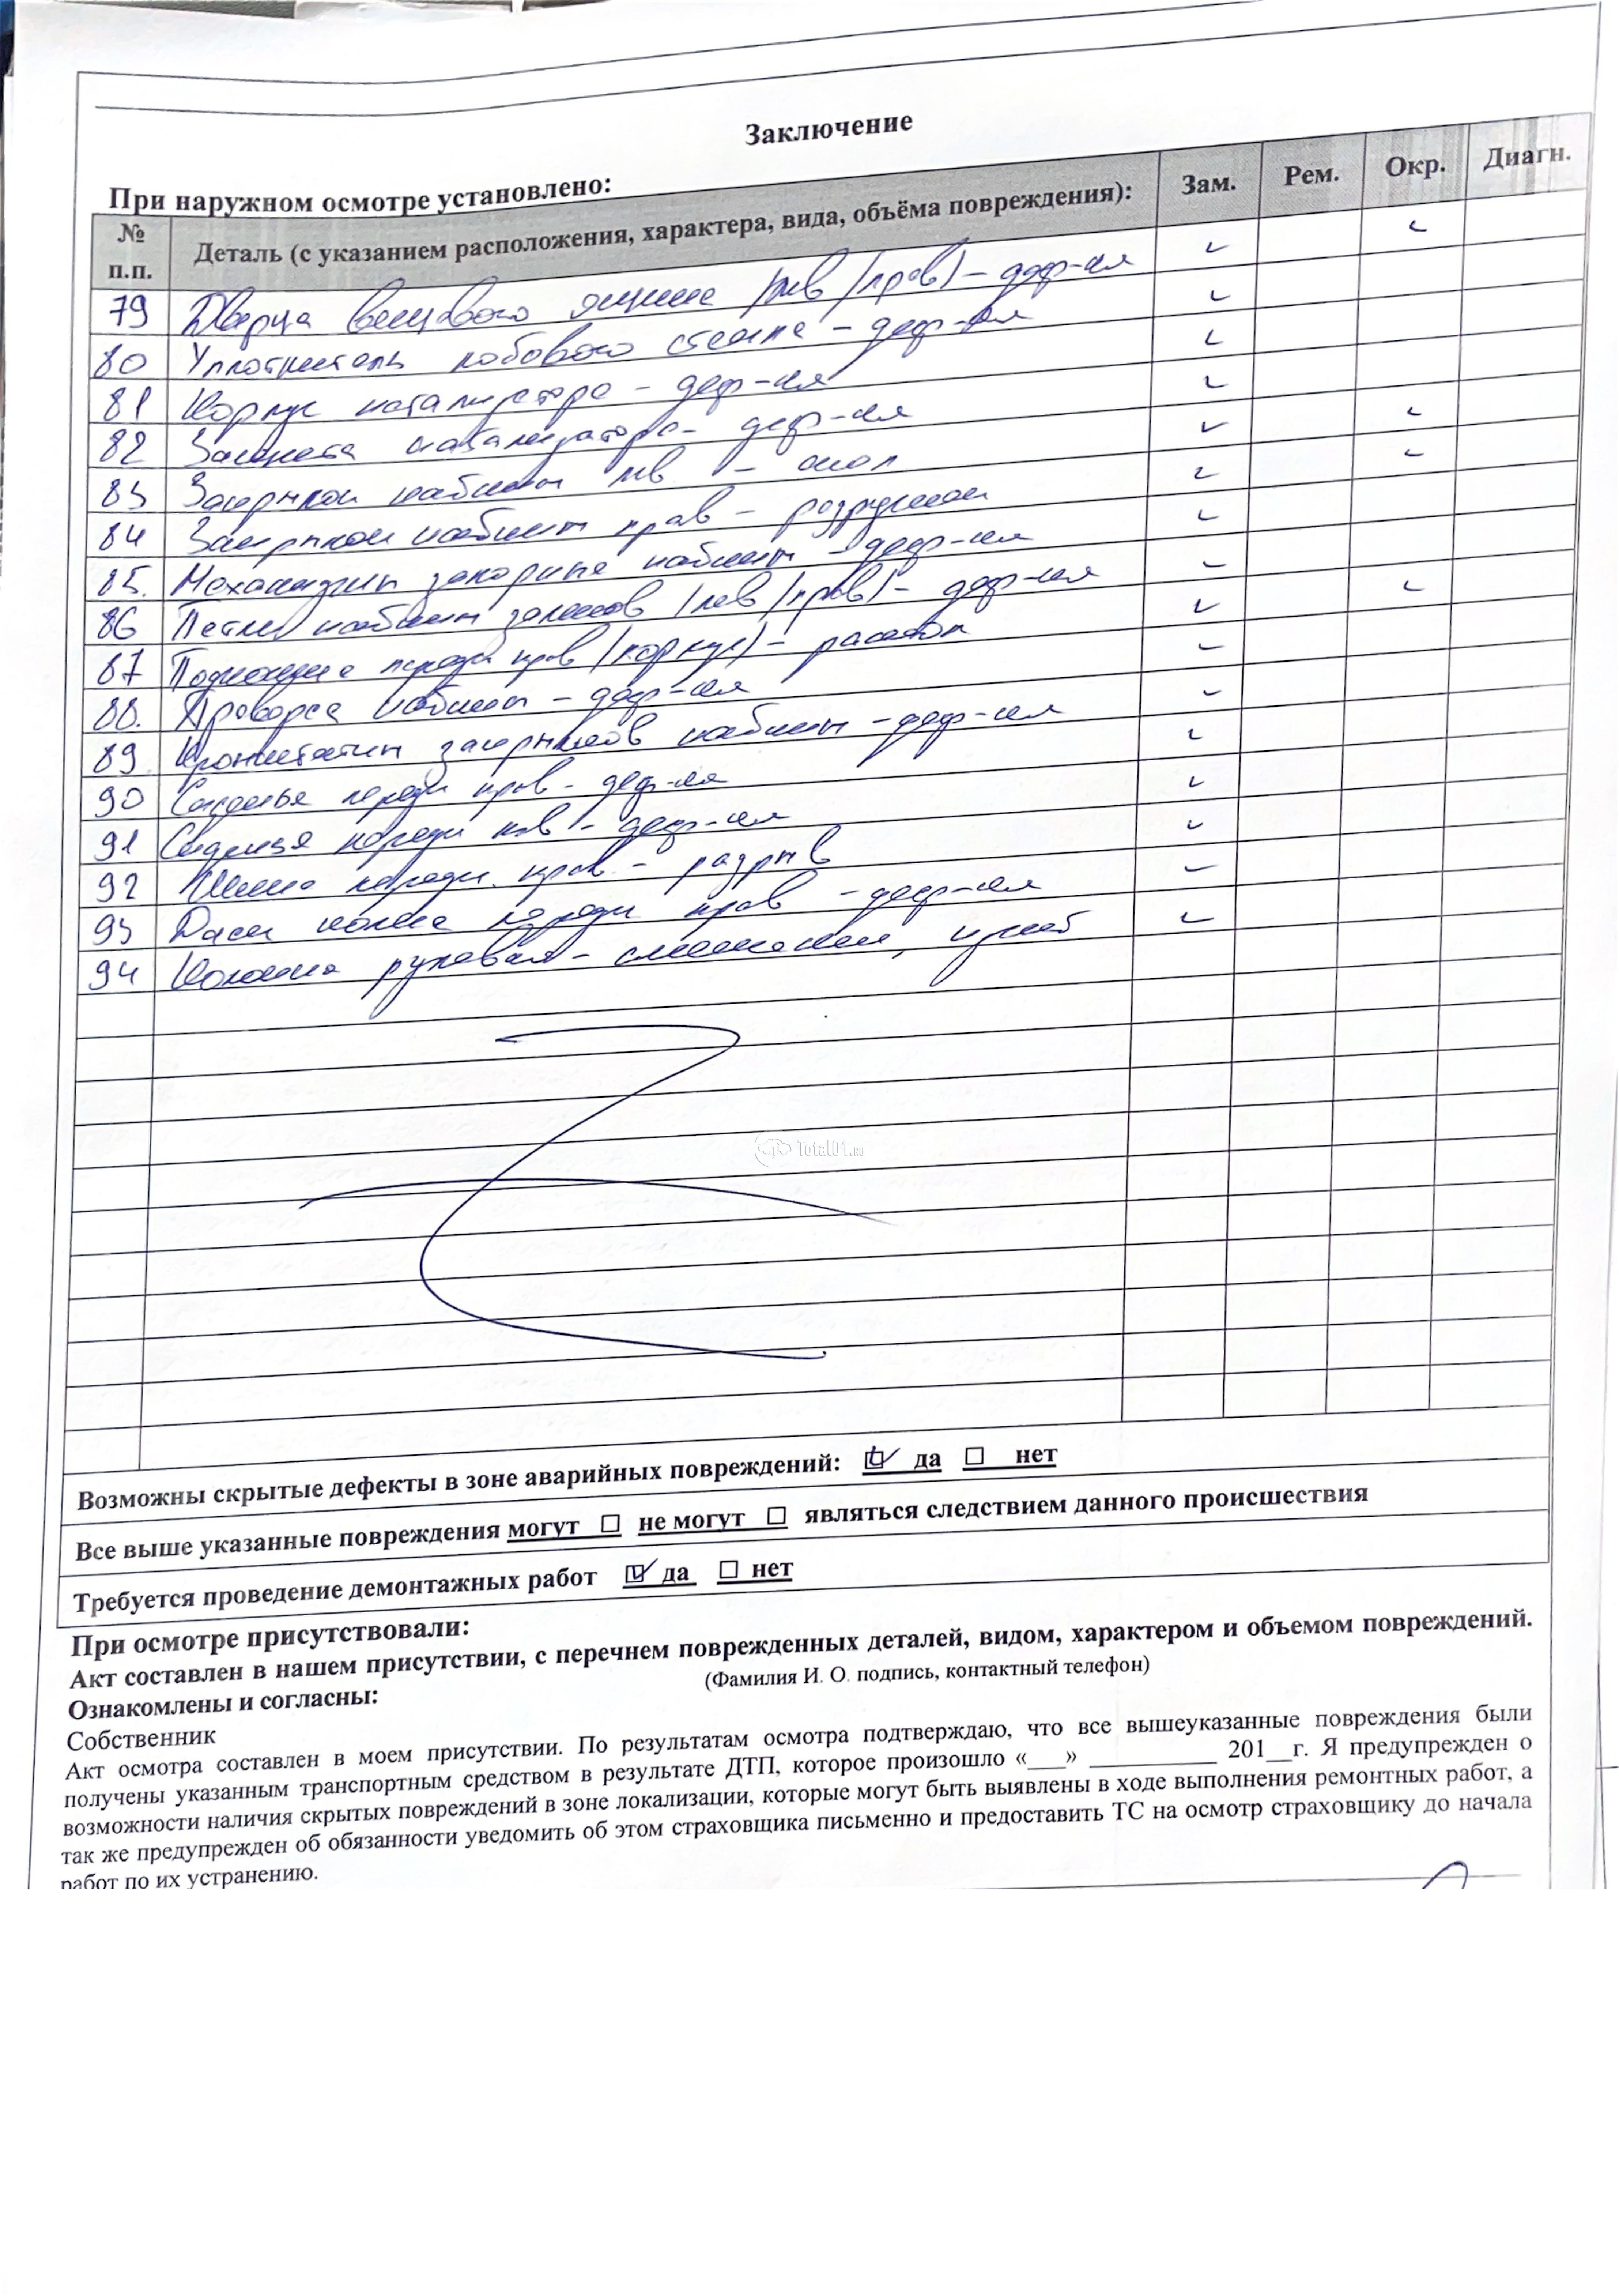 Заключение
При наружном осмотре установлено:
№ п.п. Деталь (с указанием расположения, характера, вида, объёма повреждения): Зам. Рем. Окр. Диагн.
79 Дверца вещевого ящика лев/прав - деф-ия
80 Уплотнитель лобового стекла - деф-ия
81 Корпус катализатора - деф-ия
82 Защита катализатора - деф-ия
83 Закрылок кабины лев - скол
84 Закрылок кабины прав - разрушен
85. Механизм запорный кабины - деф-ия
86 Петли кабины (лев/прав) - деф-ия
87 Подножка передн прав (корпус) - раскол
88. кабины - деф-ия
89 Кронштейн закрылков кабины - деф-ия
90 Сиденье передн прав - деф-ия
91 Сиденья передн лев - деф-ия
92 Шина передн. прав. - разрыв
93 Диск колеса передн прав - деф-ия
94 Колонка рулевая - смещение, изгиб
Total01.ru
Возможны скрытые дефекты в зоне аварийных повреждений: да нет
Все выше указанные повреждения могут не могут являться следствием данного происшествия
Требуется проведение демонтажных работ да нет
При осмотре присутствовали:
Акт составлен в нашем присутствии, с перечнем поврежденных деталей, видом, характером и объемом повреждений.
Ознакомлены и согласны: (Фамилия И. О. подпись, контактный телефон)
Собственник
Акт осмотра составлен в моем присутствии. По результатам осмотра подтверждаю, что все вышеуказанные повреждения были
получены указанным транспортным средством в результате ДТП, которое произошло «___» __________ 201__г. Я предупрежден о
возможности наличия скрытых повреждений в зоне локализации, которые могут быть выявлены в ходе выполнения ремонтных работ, а
так же предупрежден об обязанности уведомить об этом страховщика письменно и предоставить ТС на осмотр страховщику до начала
работ по их устранению.